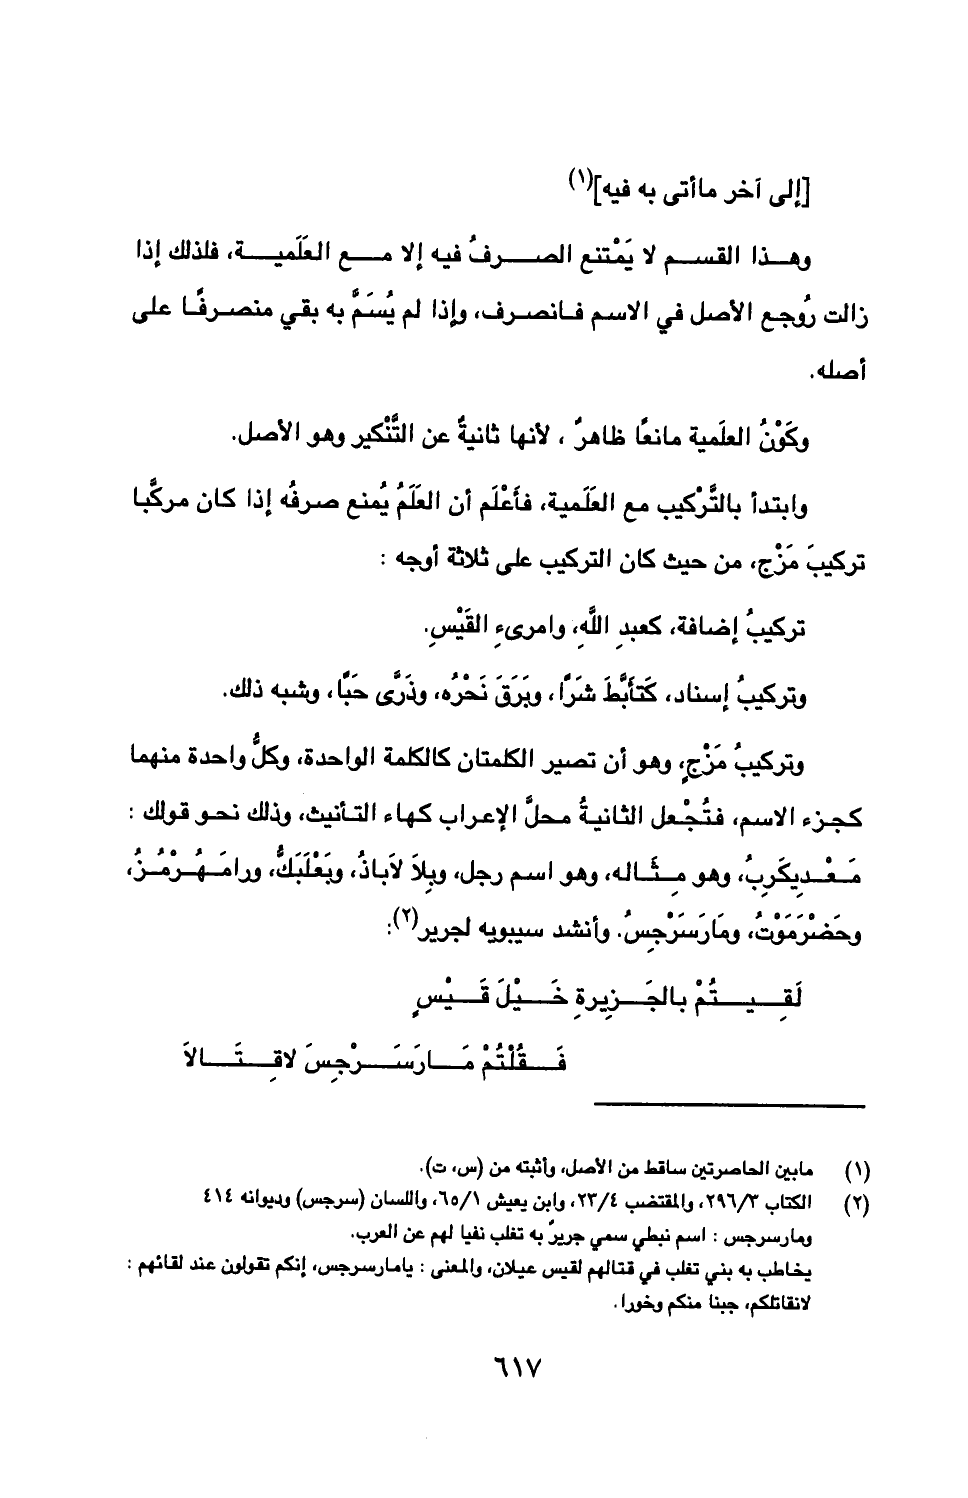 [إلى آخر ماأتى به فيه](١)
وهذا القسم لا يَمْتنع الصرفُ فيه إلا مع العَلَمية، فلذلك إذا
زالت رُوجع الأصل في الاسم فانصرف، وإذا لم يُسَمَّ به بقي منصرفًا على
أصله.
وكَوْنُ العلَمية مانعًا ظاهرٌ ، لأنها ثانيةٌ عن التَّنْكير وهو الأصل.
وابتدأ بالتَّرْكيب مع العَلَمية، فأعْلَم أن العلَمُ يُمنع صرفُه إذا كان مركَّبا
تركيبَ مَزْج، من حيث كان التركيب على ثلاثة أوجه :
تركيبُ إضافة، كعبدِ اللَّهِ، وامرىءِ القَيْسِ.
وتركيبُ إسناد، كَتأبَّطَ شرًا ، وبَرَقَ نَحْرُه، وذَرَّى حَبًّا ، وشبه ذلك.
وتركيبُ مَزْجٍ، وهو أن تصير الكلمتان كالكلمة الواحدة، وكلُّ واحدة منهما
كجزء الاسم، فتُجْعل الثانيةُ محلَّ الإعراب كهاء التأنيث، وذلك نحو قولك :
مَعْدِيكَرِبُ، وهو مِثَاله، وهو اسم رجل، وبِلاَ لاَباذُ، وبَعْلَبَكُّ، ورامَهُرْمُزُ،
وحَضْرَمَوْتُ، ومَارَسَرْجِسُ. وأنشد سيبويه لجرير(٢):
لَقِيتُمْ بالجَزِيرةِ خَيْلَ قَيْسٍ
فَقُلْتُمْ مَارَسَرْجِسَ لاقِتَالاَ
(١) مابين الحاصرتين ساقط من الأصل، وأثبته من (س، ت).
(٢) الكتاب ٢٩٦/٣، والمقتضب ٢٣/٤، وابن يعيش ٦٥/١، واللسان (سرجس) وديوانه ٤١٤
ومارسرجس : اسم نبطي سمي جريرٌ به تغلب نفيا لهم عن العرب.
يخاطب به بني تغلب في قتالهم لقيس عيلان، والمعنى : يامارسرجس، إنكم تقولون عند لقائهم :
لانقاتلكم، جبنا منكم وخورا.
٦١٧